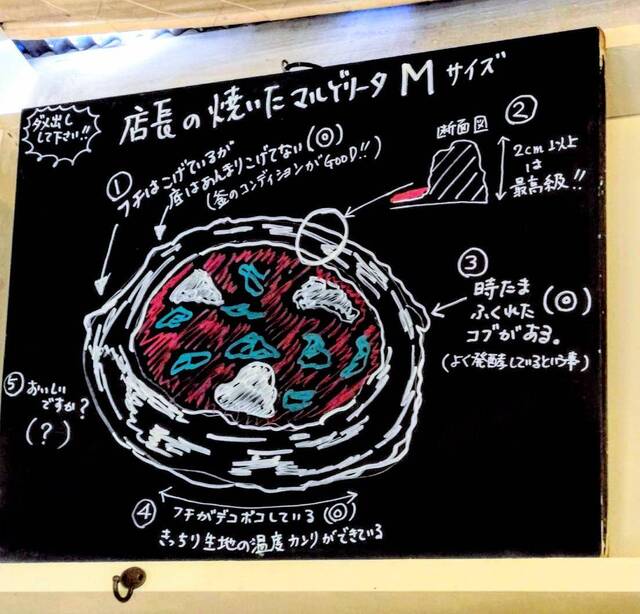 ダメ出し
して下さい!!
店長の焼いたマルゲリータ Mサイズ
①
フチはこげているが
底はあんまりこげてない(◎)
(釜のコンディションがGOOD!!)
②
断面図
2cm以上
は
最高級!!
③
時たま
ふくれた
コブがある。
(◎)
(よく発酵しているという事)
⑤ おいしい
ですか?
(?)
④ フチがデコボコしている(◎)
きっちり生地の温度カンリができている